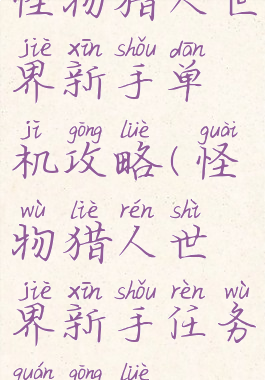 怪物猎人世
jiè xīn shǒu dān
界新手单
jī gōng lüè guài
机攻略(怪
wù liè rén shì
物猎人世
jiè xīn shǒu rèn wù
界新手任务
quán gōng lüè